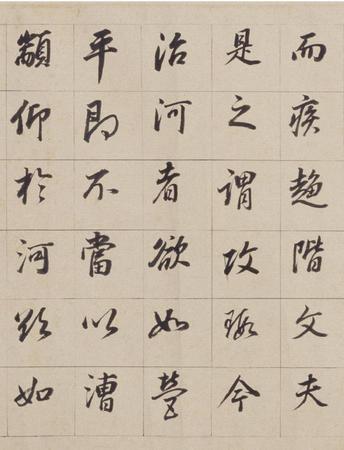 而疾趍階文夫
是之謂攻瑕今
治河者欲如營
平即不當以漕
顓仰於河如